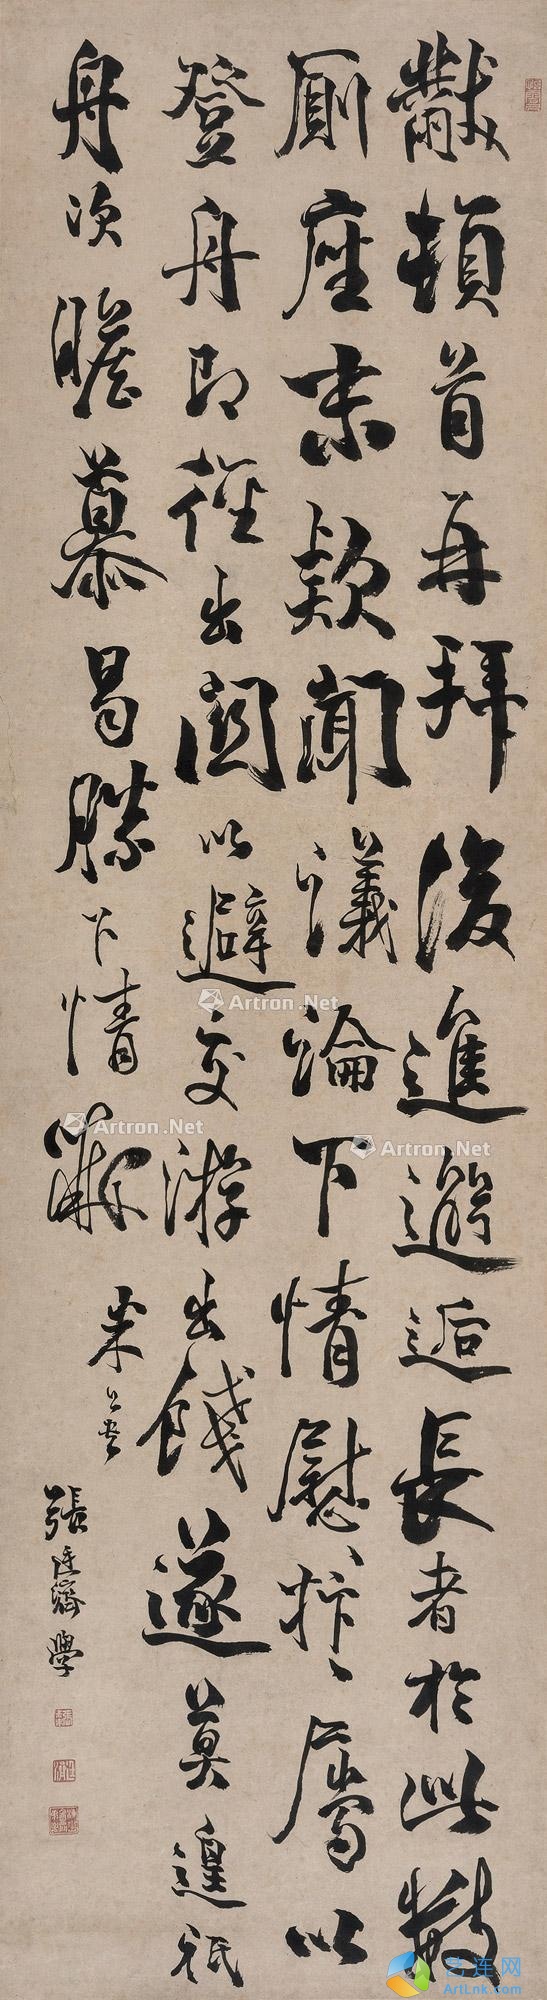 黻頓首再拜後進邂逅長者於此數
廁座末款聞議論下情慰抃慰抃屬以
登舟即徑出關以避交游出餞遂莫遑祗
舟次瞻慕曷勝下情黻
米公書
張廷濟學
Artron.Net
Artron.Net
Artron.Net
Artron.Net
艺连网
ArtLnk.com